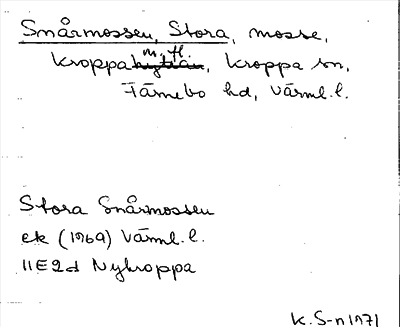 Snårmossen, Stora, mosse,
Kroppa m. fl., Kroppa sn,
Färnebo hd, Värml. l.
Stora Snårmossen
ek (1969) Värml. l.
11E2d Nykroppa
K. S-n 1971